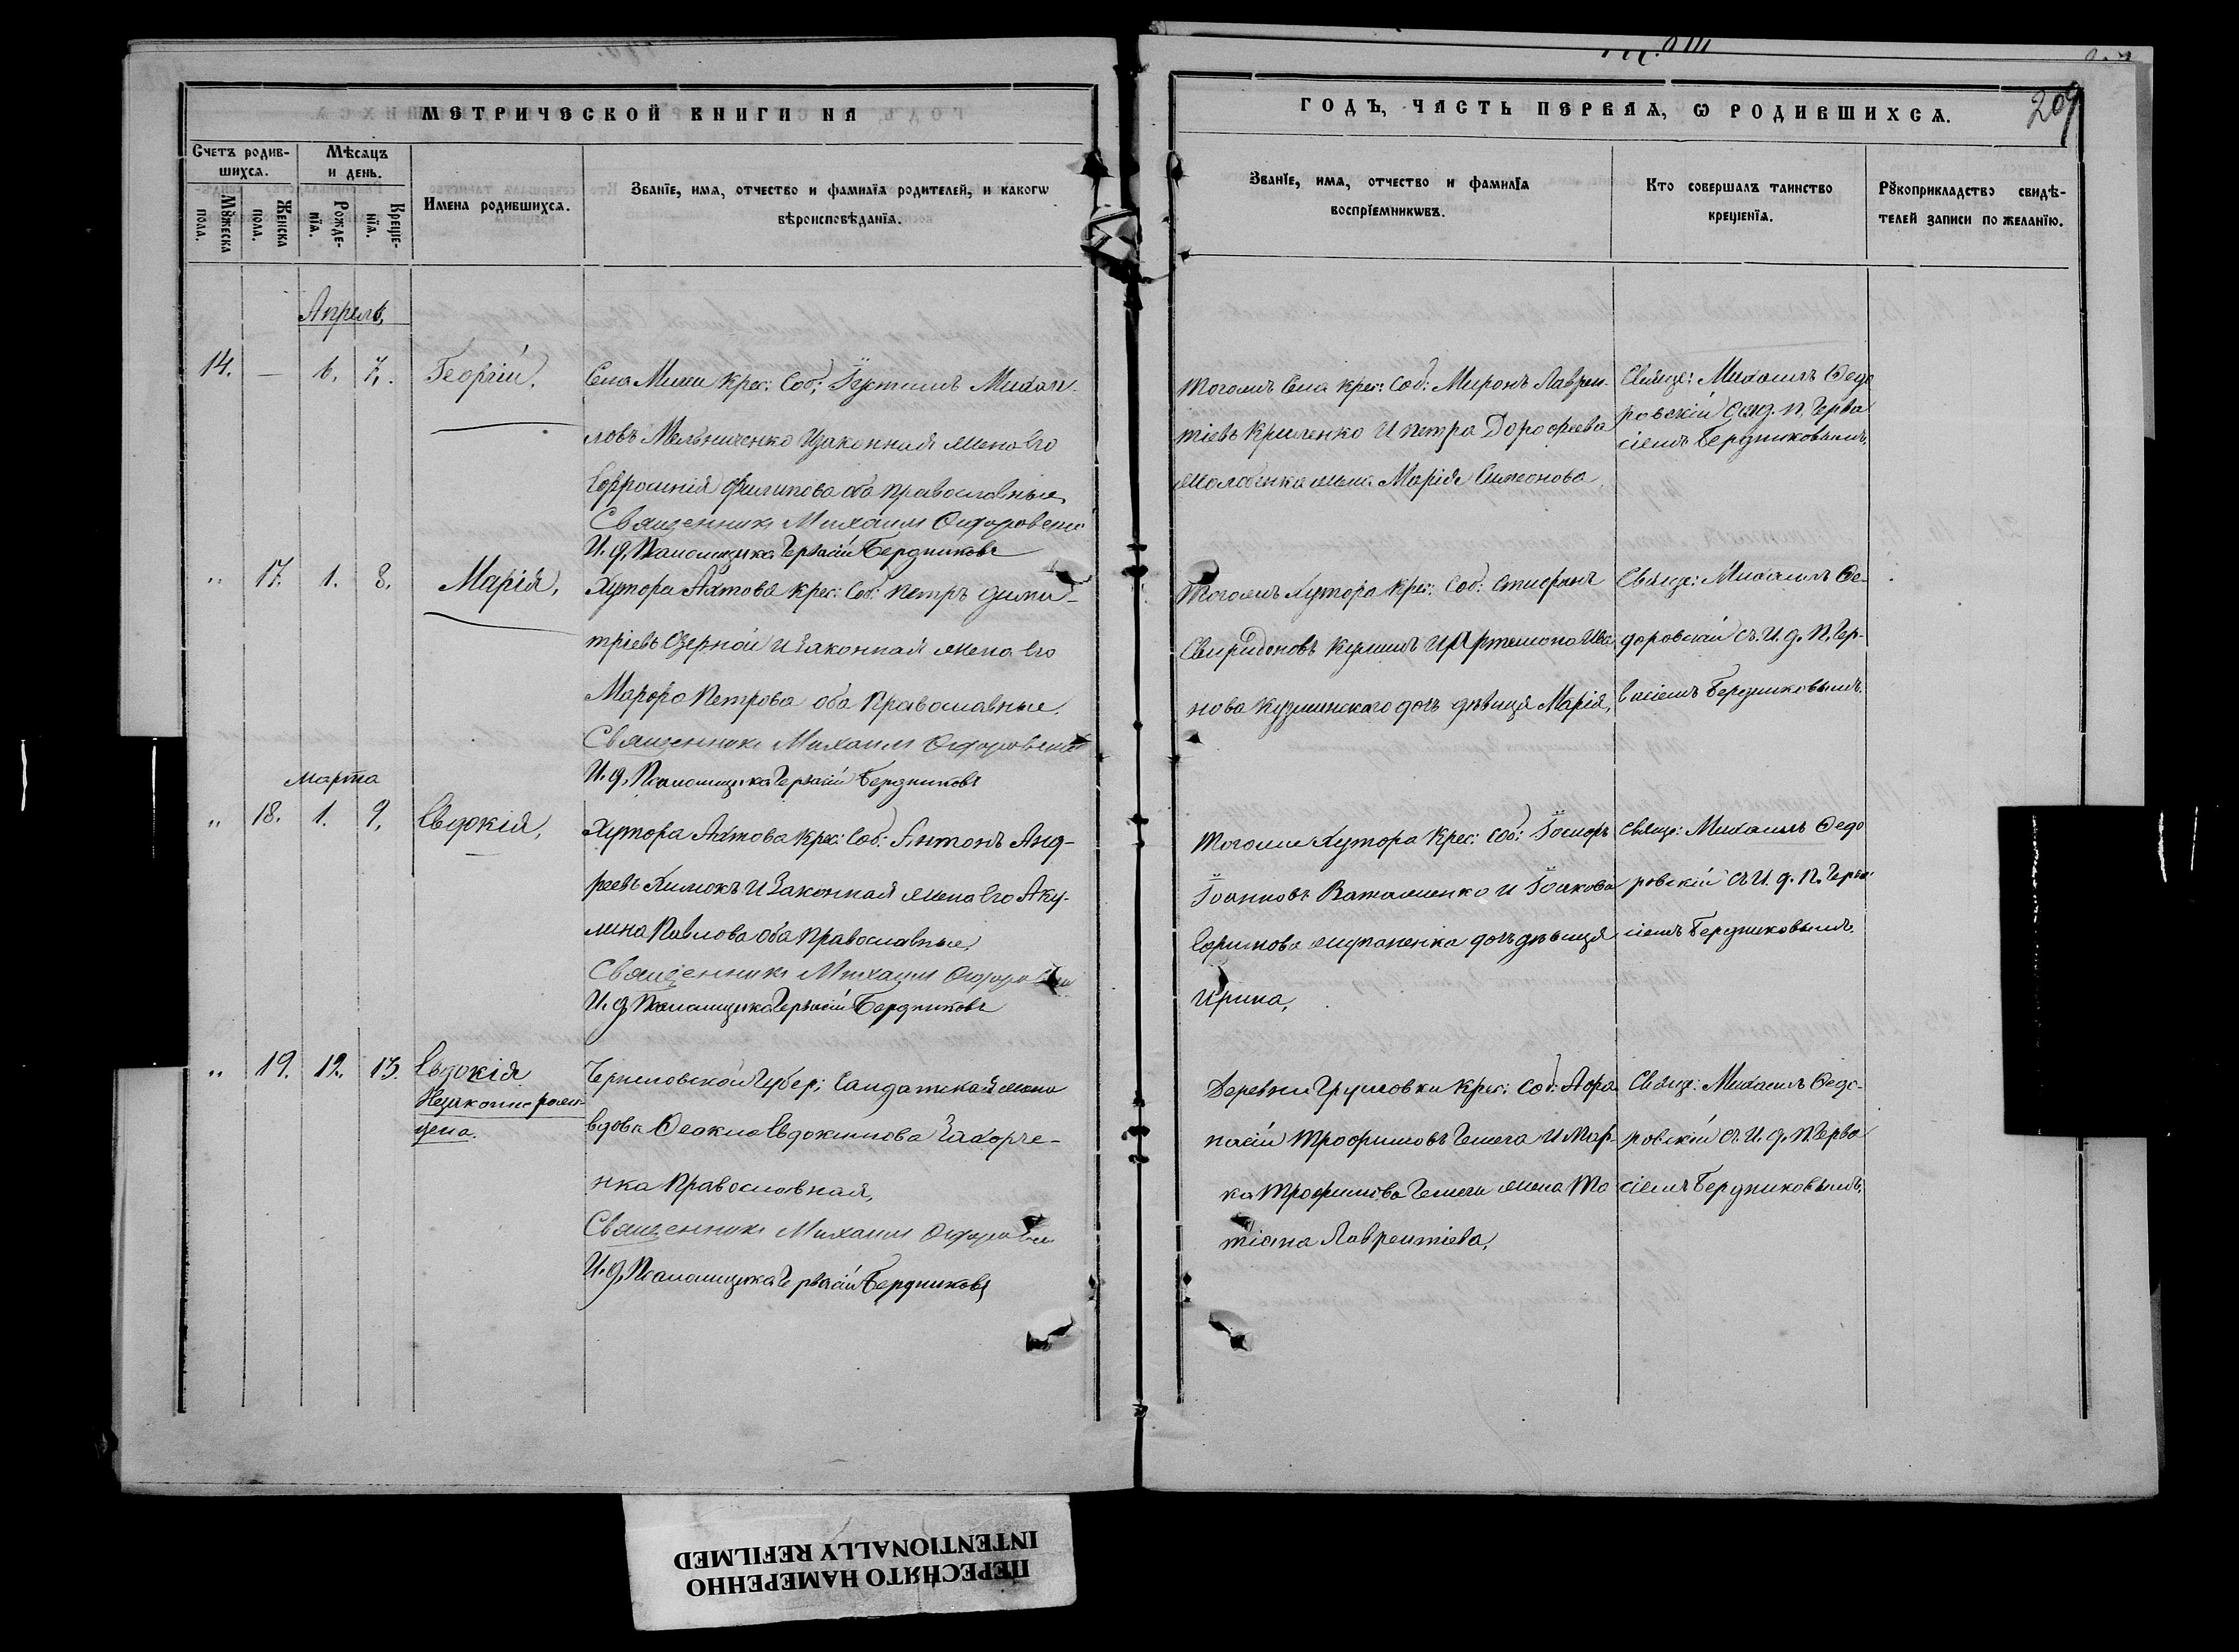 МЕТРИЧЕСКОЙ КНИГИ НА
Счетъ родив-
шихся.
Мѣсяцъ
и день.
Мꙋжеска
пола.
Женска
пола.
Рожде-
нїя.
Креще-
нїя.
Имена родившихся.
Званїе, имя, отчество и фамилїя родителей, и какогѡ
вѣроисповѣданїя.
Апрель,
14. — 6. 7. Георгій.
Села Крес: Соб:
ловъ Мельниченко и законная жена его
Филипова оба православные,
Священникъ Михаилъ Федоровскій
И. д. Псаломщика Гервасій Бердниковъ
" 17. 1. 8. Марія,
Хутора Ахтова Крес: Соб: Петръ Дими-
тріевъ Озерной и законная жена его
Марфа Петрова оба Православные.
Священникъ Михаилъ Федоровскій
И. д. Псаломщика Гервасій Бердниковъ
Марта
" 18. 1. 9. Евдокія,
Хутора Ахтова Крес: Соб: Антонъ Анд-
реевъ и законная жена его Аку-
лина Павлова оба православные,
Священникъ Михаилъ Федоровскій
И. д. Псаломщика Гервасій Бердниковъ
" 19. 12. 13. Евдокія
Незаконнорож-
дена.
Губер: Салдатская жена
вдова Евдокимова Захарче-
нка Православная,
Священникъ Михаилъ Федоровскій
И. д. Псаломщика Гервасій Бердниковъ
ГОДЪ, ЧАСТЬ ПЕРВАЯ, Ѡ РОДИВШИХСЯ.
209
Званїе, имя, отчество и фамилїя
воспрїемникѡвъ.
Кто совершалъ таинство
крещенїя.
Рꙋкоприкладство свидѣ-
телей записи по желанїю.
Тогожъ Села Крес: Соб: Миронъ Лаврен-
тіевъ Криленко и Петра Дорофеева
жена Марія Симеонова.
Свящ: Михаилъ Федо
ровскій съ и. д. п. Герва
сіемъ Бердниковымъ.
Тогожъ Хутора Крес: Соб: Стефанъ
Свиридоновъ и Артемона Ива
нова Кузминскаго дочь дѣвица Марія,
Свящ: Михаилъ Фе-
доровскій съ И. д. П. Гер-
васіемъ Бердниковымъ.
Тогоже Хутора Крес: Соб:
Іоанновъ Ваташенко и Іоакова
Ефимова дочь дѣвица
Ирина,
Свящ: Михаилъ Федо
ровскій съ И. д. П. Герва
сіемъ Бердниковымъ.
Деревни Грушовки Крес: Соб: Афа
насій Трофимовъ и Мар-
ка Трофимова жена Та
тіана Лаврентіева,
Свящ: Михаилъ Федо-
ровскій съ И. д. П. Герва
сіемъ Бердниковымъ,
ПЕРЕСНЯТО НАМЕРЕННО
INTENTIONALLY REFILMED